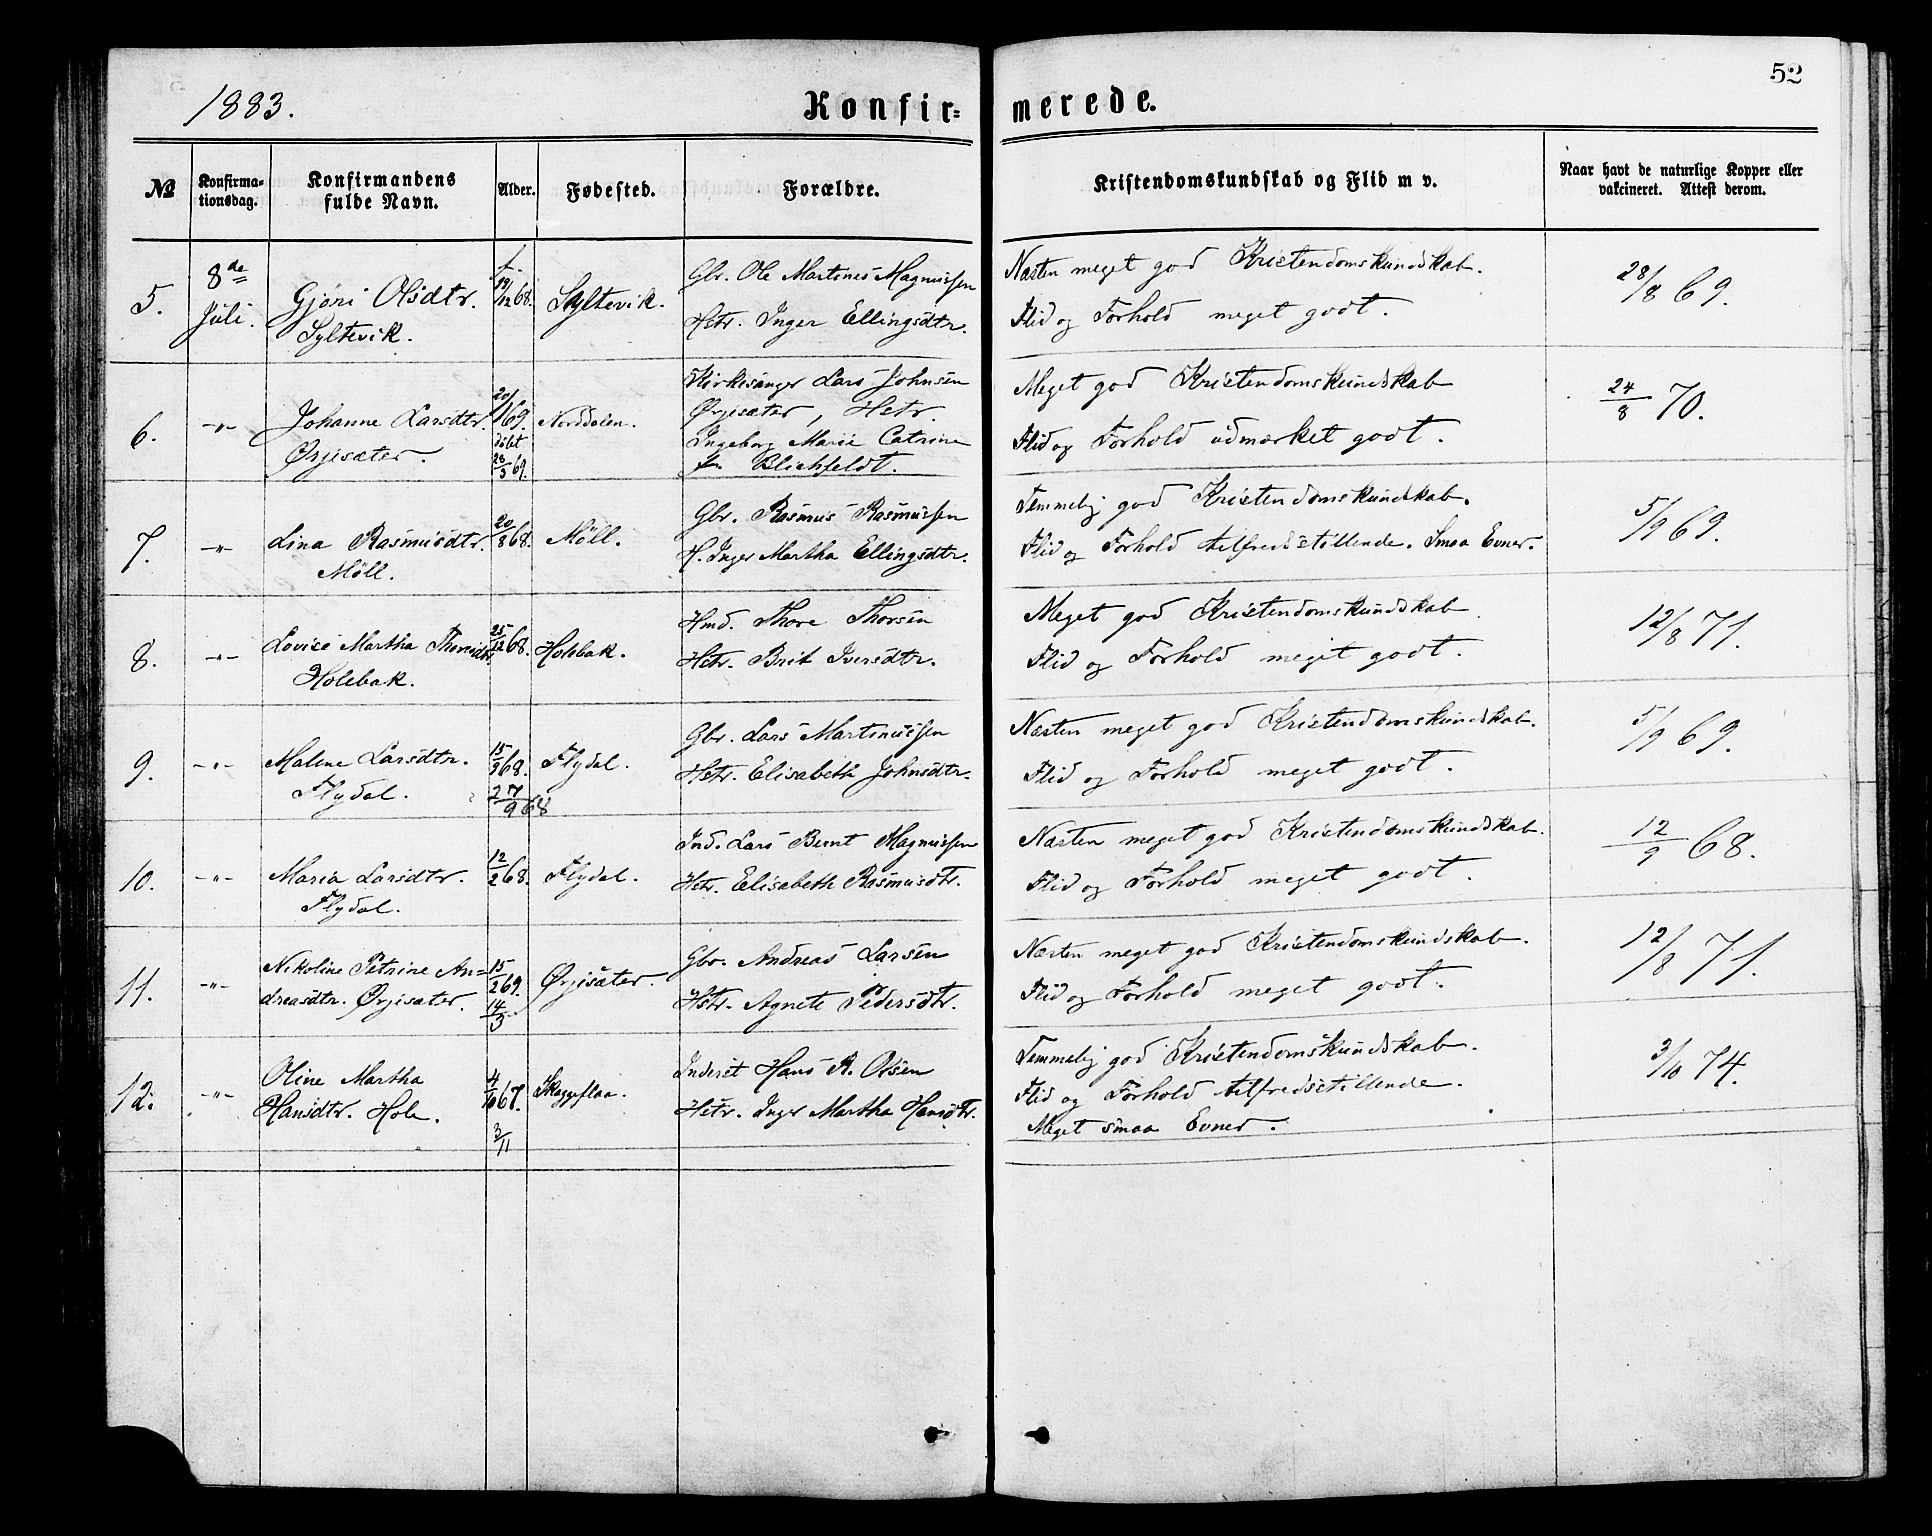 52
1883.
Konfir=
merede.
№
Konfirma-
tionsdag.
Konfirmandens
fulde Navn.
Alder.
Fødested.
Forældre.
Kristendomskundskab og Flid m v.
Naar havt de naturlige Kopper eller
vakcineret. Attest derom.
5.
8de
Juli.
Gjøri Olsdtr.
Syltevik.
f.
19/12 68.
Syltevik.
Gbr. Ole Martines Magnussen
Hstr. Inger Ellingsdtr.
Næsten meget god Kristendomskundskab.
Flid og Forhold meget godt.
28/8 69.
6.
-"-
Johanne Larsdtr.
Ørjesæter.
20/1 69.
døbt
28/3 69.
Norddalen.
Kirkesanger Lars Johnsen
Ørjesæter, Hstr.
Ingeborg Marie Catrine
f. Blichfeldt.
Meget god Kristendomskundskab
Flid og Forhold udmærket godt.
24/8 70.
7.
-"-
Lina Rasmusdtr.
Möll.
20/8 68.
Möll.
Gbr. Rasmus Rasmussen
H. Inger Martha Ellingsdtr.
Temmelig god Kristendomskundskab.
Flid og Forhold tilfredsstillende. Smaa Evner.
5/9 69.
8.
-"-
Lovise Martha Thoresdtr.
Holebak.
25/12 68.
Holebak.
Hmd. Thore Thorsen
Hstr. Brit Iversdtr.
Meget god Kristendomskundskab
Flid og Forhold meget godt.
12/8 71.
9.
-"-
Malene Larsdtr.
Flydal.
15/9 68.
27/9 68
Flydal.
Gbr. Lars Martinussen
Hstr. Elisabeth Johnsdtr.
Næsten meget god Kristendomskundskab.
Flid og Forhold meget godt.
5/9 69.
10.
-"-
Maria Larsdtr.
Flydal.
12/2 68.
Flydal.
Ind. Lars Bernt Magnussen
Hstr. Elisabeth Rasmusdtr.
Næsten meget god Kristendomskundskab.
Flid og Forhold meget godt.
12/9 68.
11.
-"-
Nikoline Petrine An=
dreasdtr. Ørjesæter.
15/2 69.
14/3
Ørjesæter.
Gbr. Andreas Larsen
Hstr. Agnete Pedersdtr.
Næsten meget god Kristendomskundskab.
Flid og Forhold meget godt.
12/8 71.
12.
-"-
Oline Martha
Hansdtr. Hole.
4/10 67.
3/11
Skageflaa.
Inderst Hans A. Olsen
Hstr. Inger Martha Hansdtr.
Temmelig god Kristendomskundskab.
Flid og Forhold tilfredsstillende.
Meget smaa Evner.
3/10 74.